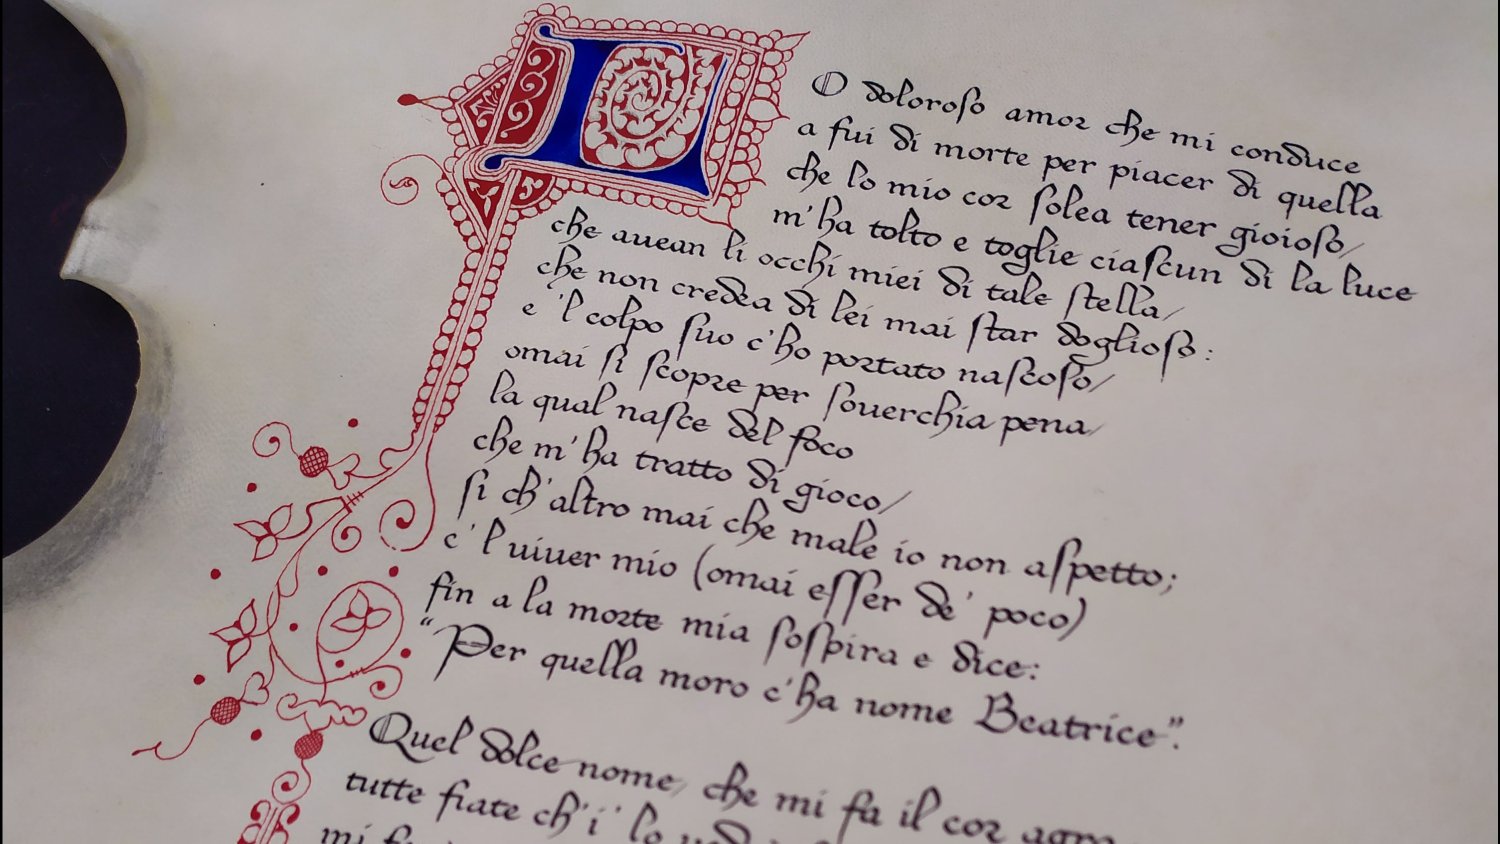 LO doloroso amor che mi conduce
a fui di morte per piacer di quella
che lo mio cor solea tener gioioso/
m'ha tolto e toglie ciascun di la luce
che auean li occhi miei di tale stella/
che non credea di lei mai star doglioso:
e 'l colpo suo c'ho portato nascoso/
omai si scopre per souerchia pena/
la qual nasce del foco
che m'ha tratto di gioco/
si ch'altro mai che male io non aspetto;
e 'l uiuer mio (omai esser de' poco)
fin a la morte mia sospira e dice:
“Per quella moro c'ha nome Beatrice”.
Quel dolce nome, che mi fa il cor
tutte fiate ch'i' lo
mi